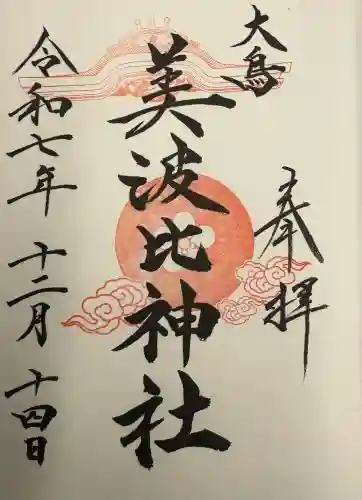 大鳥
奉拝
美波比神社
令和七年 十二月 十四日